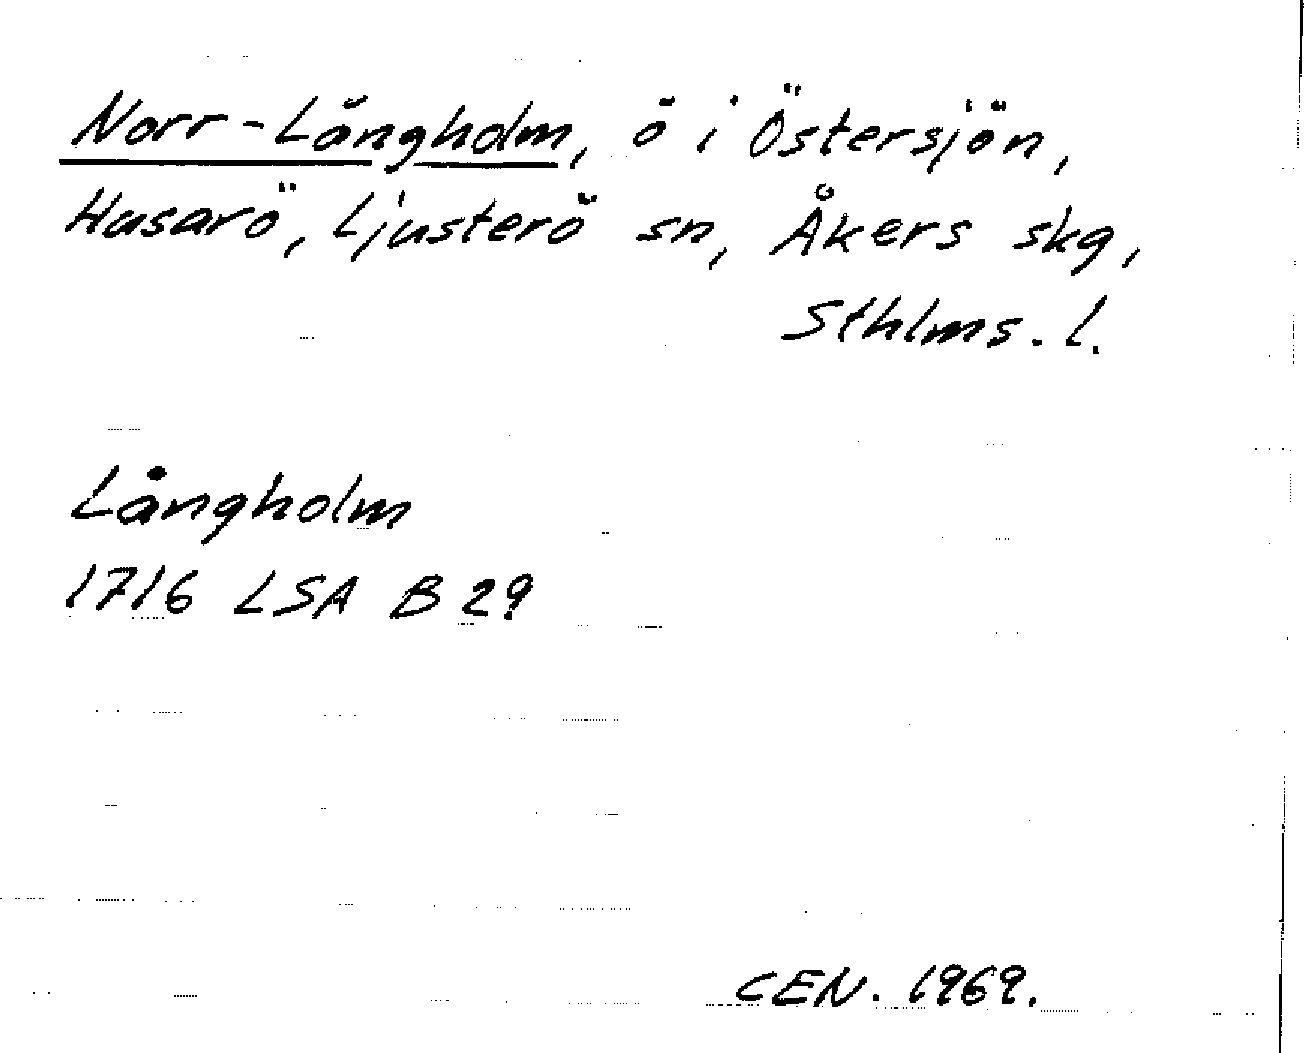 Norr-Långholm, ö i Östersjön,
Husarö, Ljusterö sn, Åkers skg,
Sthlms. l.
Långholm
1716 LSA B 29
CEN. 1969.